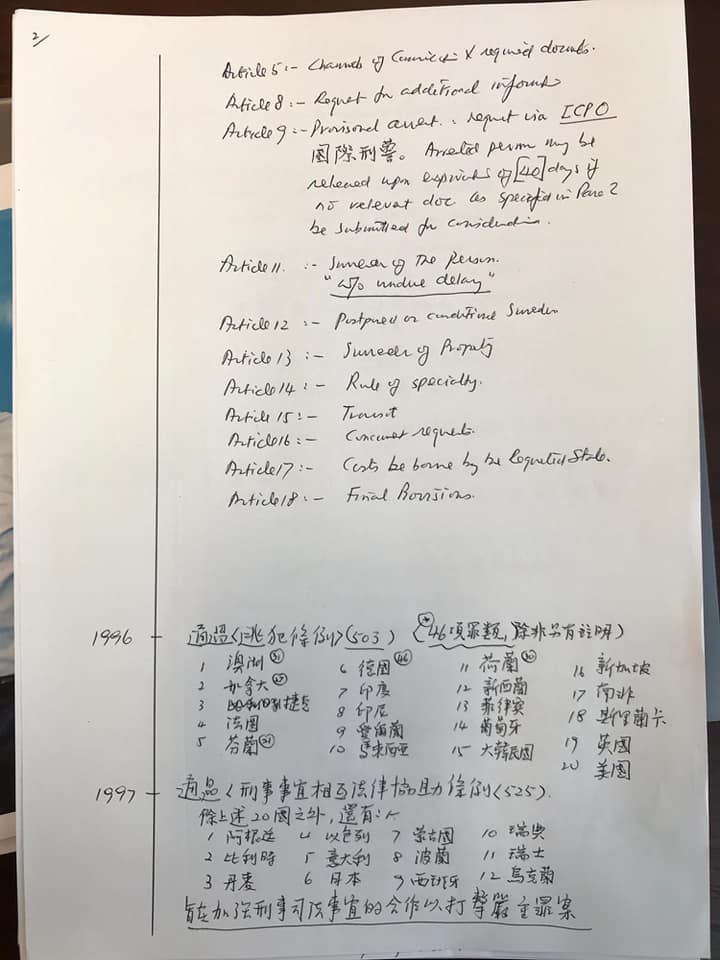 2/
Article 5 :- Channels of Communicatn & required documts.
Article 8 :- Request for additional informatn
Article 9 :- Provisional arrest : request via ICPO
國際刑警。 Arrested person may be
released upon expiratn of [40] days if
no relevant doc. as specified in Para 2
be submitted for consideration.
Article 11. :- Surrender of the Person.
"w/o undue delay"
Article 12 :- Postponed or conditional Surrender
Article 13 :- Surrender of Property
Article 14 :- Rule of specialty.
Article 15 :- Transit
Article 16 :- Concurrent requests.
Article 17 :- Costs be borne by the Requested State.
Article 18 :- Final Provisions.
1996 通過《逃犯條例》(503) (* 46項罪類, 除非另有註明)
1 澳洲 6 德國 11 荷蘭 16 新加坡
2 加拿大 7 印度 12 新西蘭 17 南非
3 捷克 8 印尼 13 菲律賓 18 斯里蘭卡
4 法國 9 愛爾蘭 14 葡萄牙 19 英國
5 芬蘭 10 馬來西亞 15 大韓民國 20 美國
1997 通過《刑事事宜相互法律協助條例》(525).
除上述20國之外, 還有:-
1 阿根廷 4 以色列 7 蒙古國 10 瑞典
2 比利時 5 意大利 8 波蘭 11 瑞士
3 丹麥 6 日本 9 西班牙 12 烏克蘭
旨在加強刑事司法事宜的合作以打擊嚴重罪案